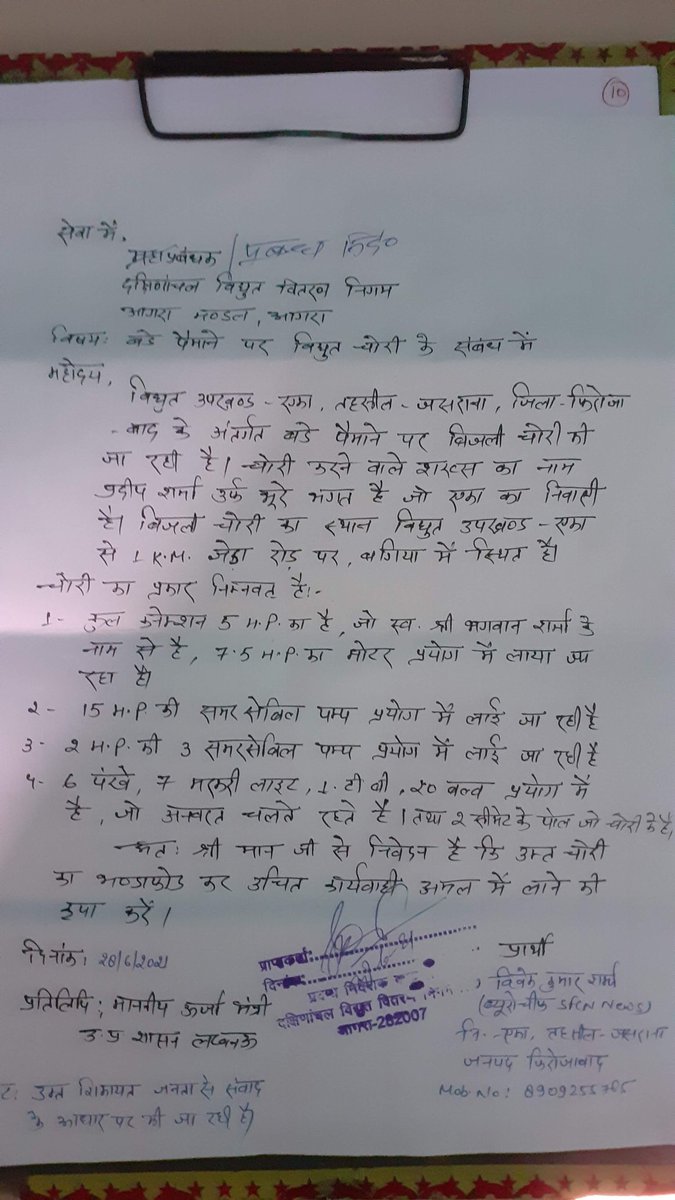 10
सेवा में,
महाप्रबंधक / प्रबन्ध
दक्षिणांचल विद्युत वितरण निगम
आगरा मण्डल, आगरा
विषय: बडे पैमाने पर विद्युत चोरी के संबंध में
महोदय,
विद्युत उपखण्ड - एका, तहसील - जसराना, जिला - फिरोजा
- बाद के अंतर्गत बडे पैमाने पर बिजली चोरी की
जा रही है। चोरी करने वाले शख्स का नाम
प्रदीप शर्मा उर्फ भूरे भगत है जो एका का निवासी
है। बिजली चोरी का स्थान विद्युत उपखण्ड - एका
से 1 K.M. जेडा रोड़ पर, बगिया में स्थित है।
चोरी का प्रकार निम्नवत है।-
1- कुल कनेक्शन 5 H.P. का है, जो स्व. श्री भगवान शर्मा के
नाम से है, 7.5 H.P. का मोटर प्रयोग में लाया जा
रहा है।
2- 15 H.P. की समरसेबिल पम्प प्रयोग में लाई जा रही है
3- 2 H.P. की 3 समरसेबिल पम्प प्रयोग में लाई जा रही है
4- 6 पंखे, 7 मरकरी लाइट, 1. टी वी, 20 बल्व प्रयोग में
है, जो अनवरत चलते रहते है। तथा 2 सीमेट के पोल जो चोरी के है,
अत: श्री मान जी से निवेदन है कि उक्त चोरी
का भण्डाफोड कर उचित कार्यवाही अमल में लाने की
कृपा करें।
दिनांक: 28/6/2021
प्राप्तकर्ता:
दिनांक:
प्रबन्ध निदेशक
दक्षिणांचल विद्युत वितरण निगम
आगरा-282007
प्रार्थी
विवेक कुमार शर्मा
(ब्यूरो चीफ SFCN NEWS)
नि. - एका, तहसील - जसराना
जनपद फिरोजाबाद
Mob No: 8909255765
प्रतिलिपि; माननीय ऊर्जा मंत्री
उ प्र शासन लखनऊ
ट: उक्त शिकायत जनता से संवाद
के आधार पर की जा रही है।